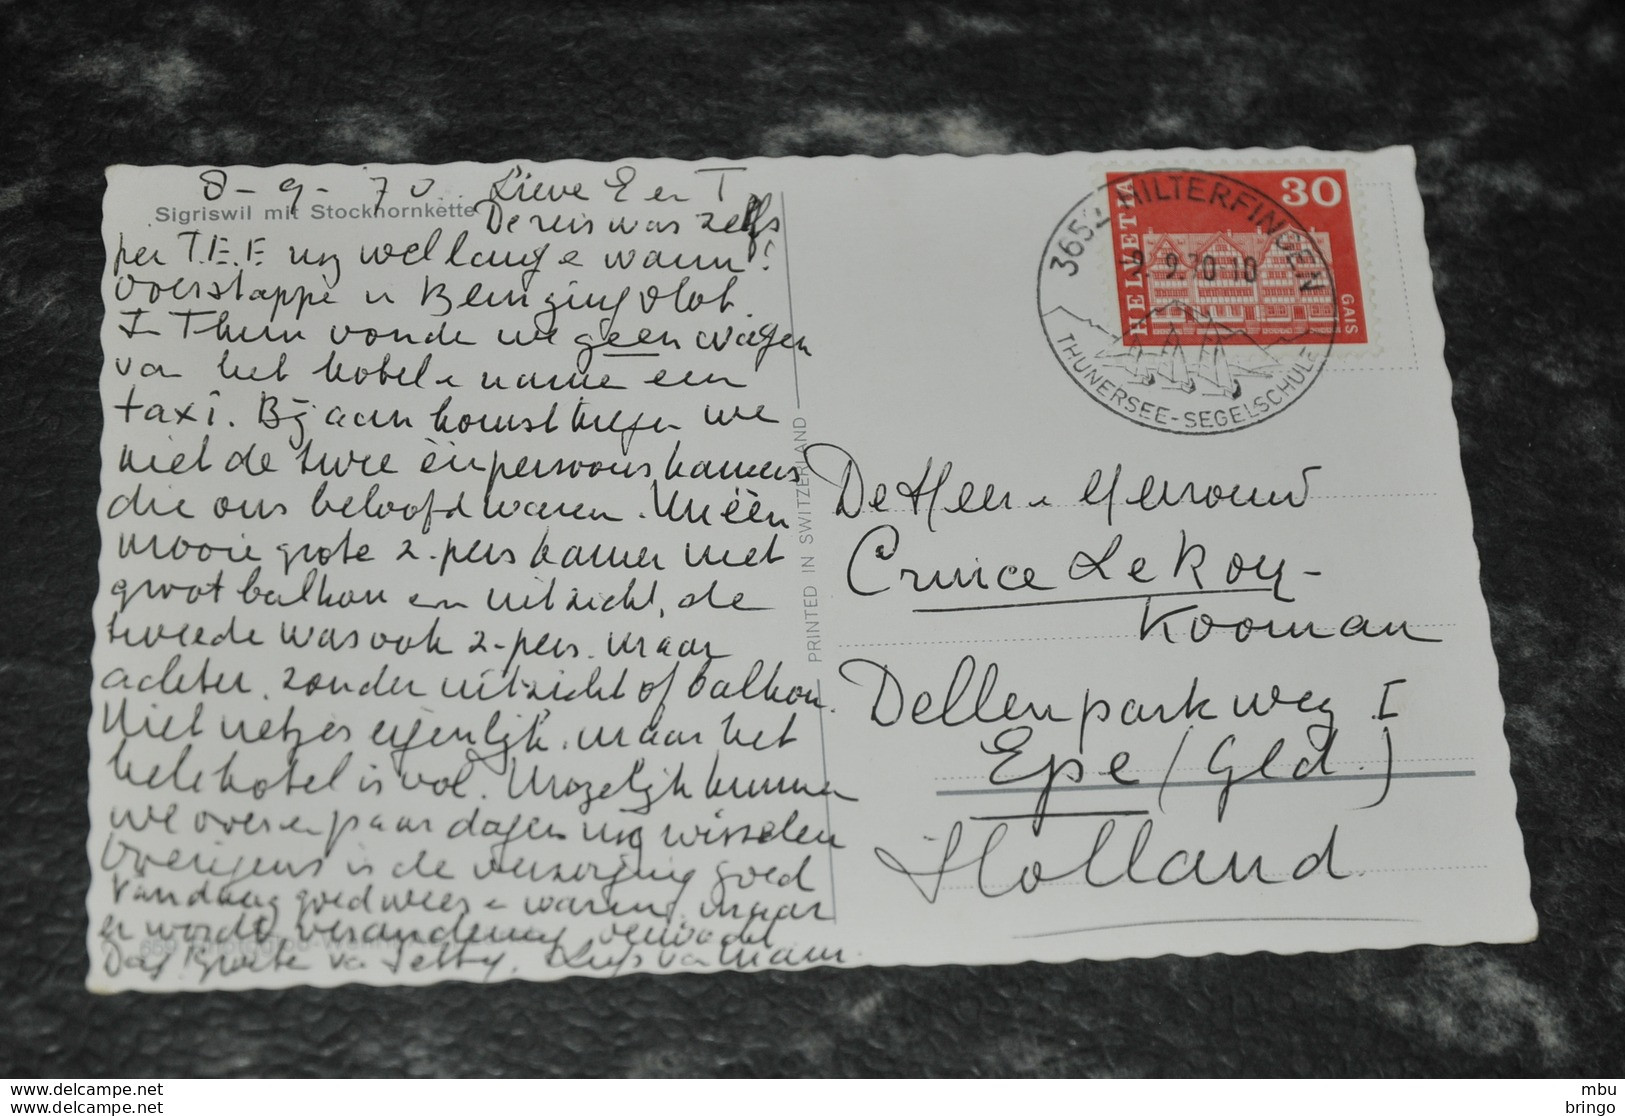 8-9-70. Lieve E en T
Sigriswil mit Stockhornkette
De reis was zelfs
per T.E.E. nog wel lang e warm!
Overstappe in Bern ging vlot.
In Thun vonde we geen wagen
van het hotel e name een
taxi. Bij aankomst kregen we
niet de twee éénpersoonskamers
die ons beloofd waren. Wel één
mooie grote 2-pers kamer met
groot balkon en uitzicht, de
tweede was ook 2-pers. maar
achter, zonder uitzicht of balkon.
Niet netjes eigenlijk, maar het
hele hotel is vol. Mogelijk kunnen
we over en paar dagen nog wisselen
Overigens is de verzorging goed
Vandaag goed weer e warm, maar
er wordt verandering verwacht
Dag Groete va Jetty. Liefs va Mam.
PRINTED IN SWITZERLAND
HELVETIA
30
GAIS
3652 HILTERFINGEN
9.9.70-10
THUNERSEE-SEGELSCHULE
De Heer e Mevrouw
Crince Le Roy-
Kooman
Dellenparkweg 1
Epe (Gld.)
Holland
mbu
bringo
www.delcampe.net
www.delcampe.net